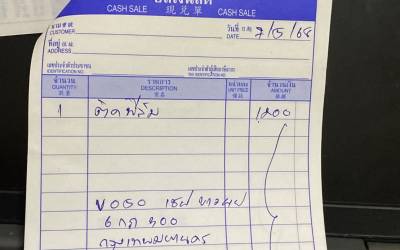 บิลเงินสด
CASH SALE 現兌單 CASH SALE
นาม
CUSTOMER
วันที่
DATE 7/5/68
ที่อยู่
ADDRESS
เลขประจำตัวประชาชน
IDENTIFICATION NO.
เลขประจำตัวผู้เสียภาษีอากร
TAX IDENTIFICATION NO.
จำนวน รายการ จำนวนเงิน
QUANTITY DESCRIPTION UNIT PRICE AMOUNT
1 ติดฟิล์ม 1,200
VOGO
6 กฎ 300
กรุงเทพมหานคร